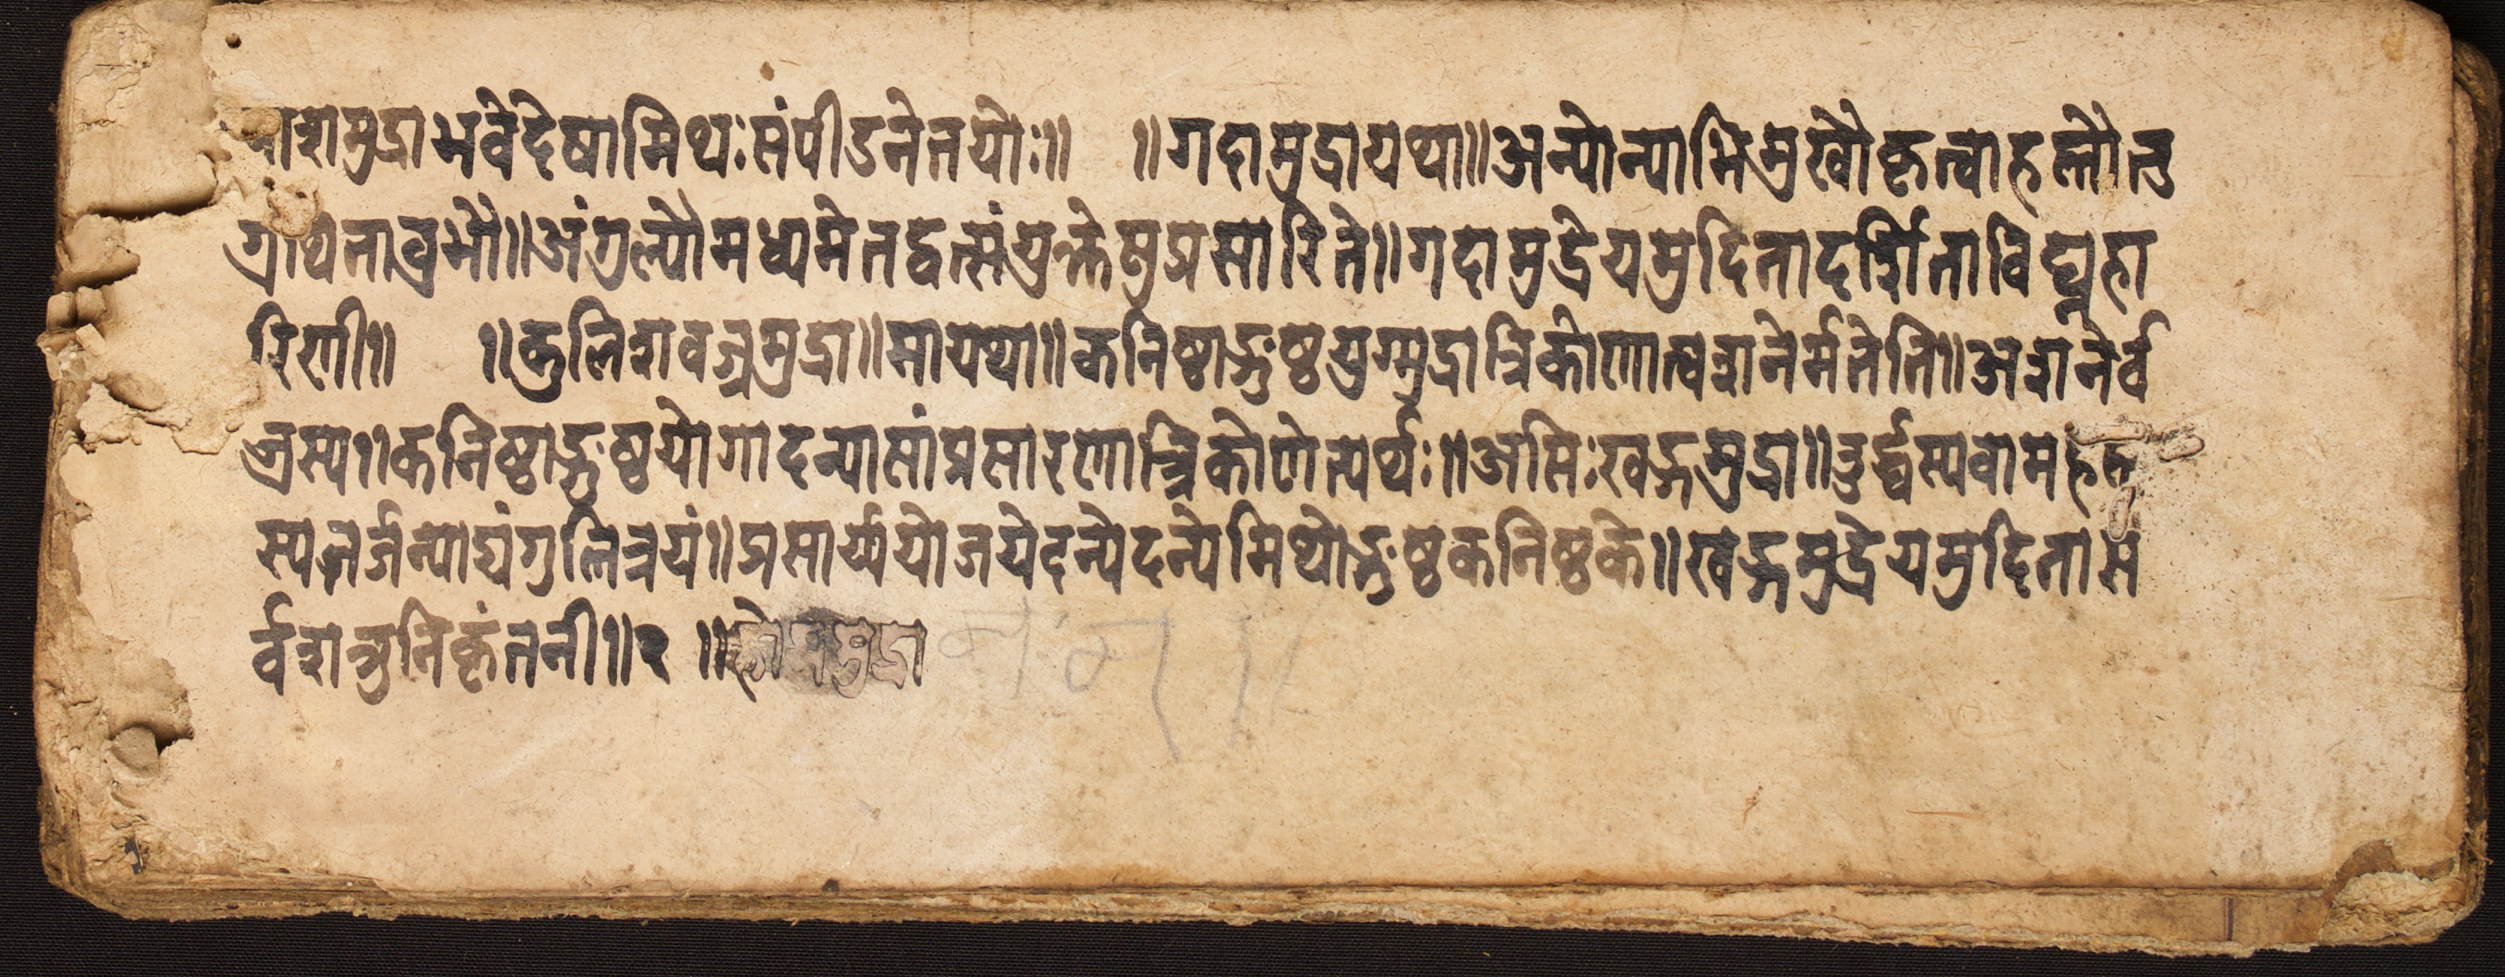 पाशमुद्राभवेदेषामिथःसंपीडनेतयोः॥ ॥गदामुद्रायथा॥अन्योन्याभिमुखौकृत्वाहस्तौतु
ग्रथितावुभौ॥अंगुल्यौमध्यमेतद्वत्संयुक्तेसुप्रसारिते॥गदामुद्रेयमुदितादर्शिताविघ्नहा
रिणी॥ ॥कुलिशवज्रमुद्रा॥सायथा॥कनिष्ठाङ्गुष्ठयुग्मुद्रात्रिकोणात्वशनेर्मतेति॥अशनेर्व
ज्रस्य॥कनिष्ठाङ्गुष्ठयोगादन्यासांप्रसारणात्त्रिकोणेत्यर्थः॥असिःखड्गमुद्रा॥उर्द्ध्वस्यवामहस्त
स्यतर्जन्याद्यंगुलित्रयं॥प्रसार्य्ययोजयेदन्येदन्येमिथोङ्गुष्ठकनिष्ठके॥खड्गमुद्रेयमुदितास
र्वशत्रुनिकृंतनी॥२ ॥